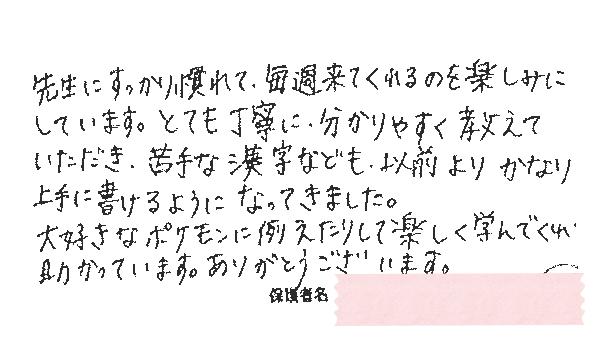 先生にすっかり慣れて、毎週来てくれるのを楽しみに
しています。とても丁寧に、分かりやすく教えて
いただき、苦手な漢字なども、以前よりかなり
上手に書けるようになってきました。
大好きなポケモンに例えたりして楽しく学んでくれ
助かっています。ありがとうございます。
保護者名